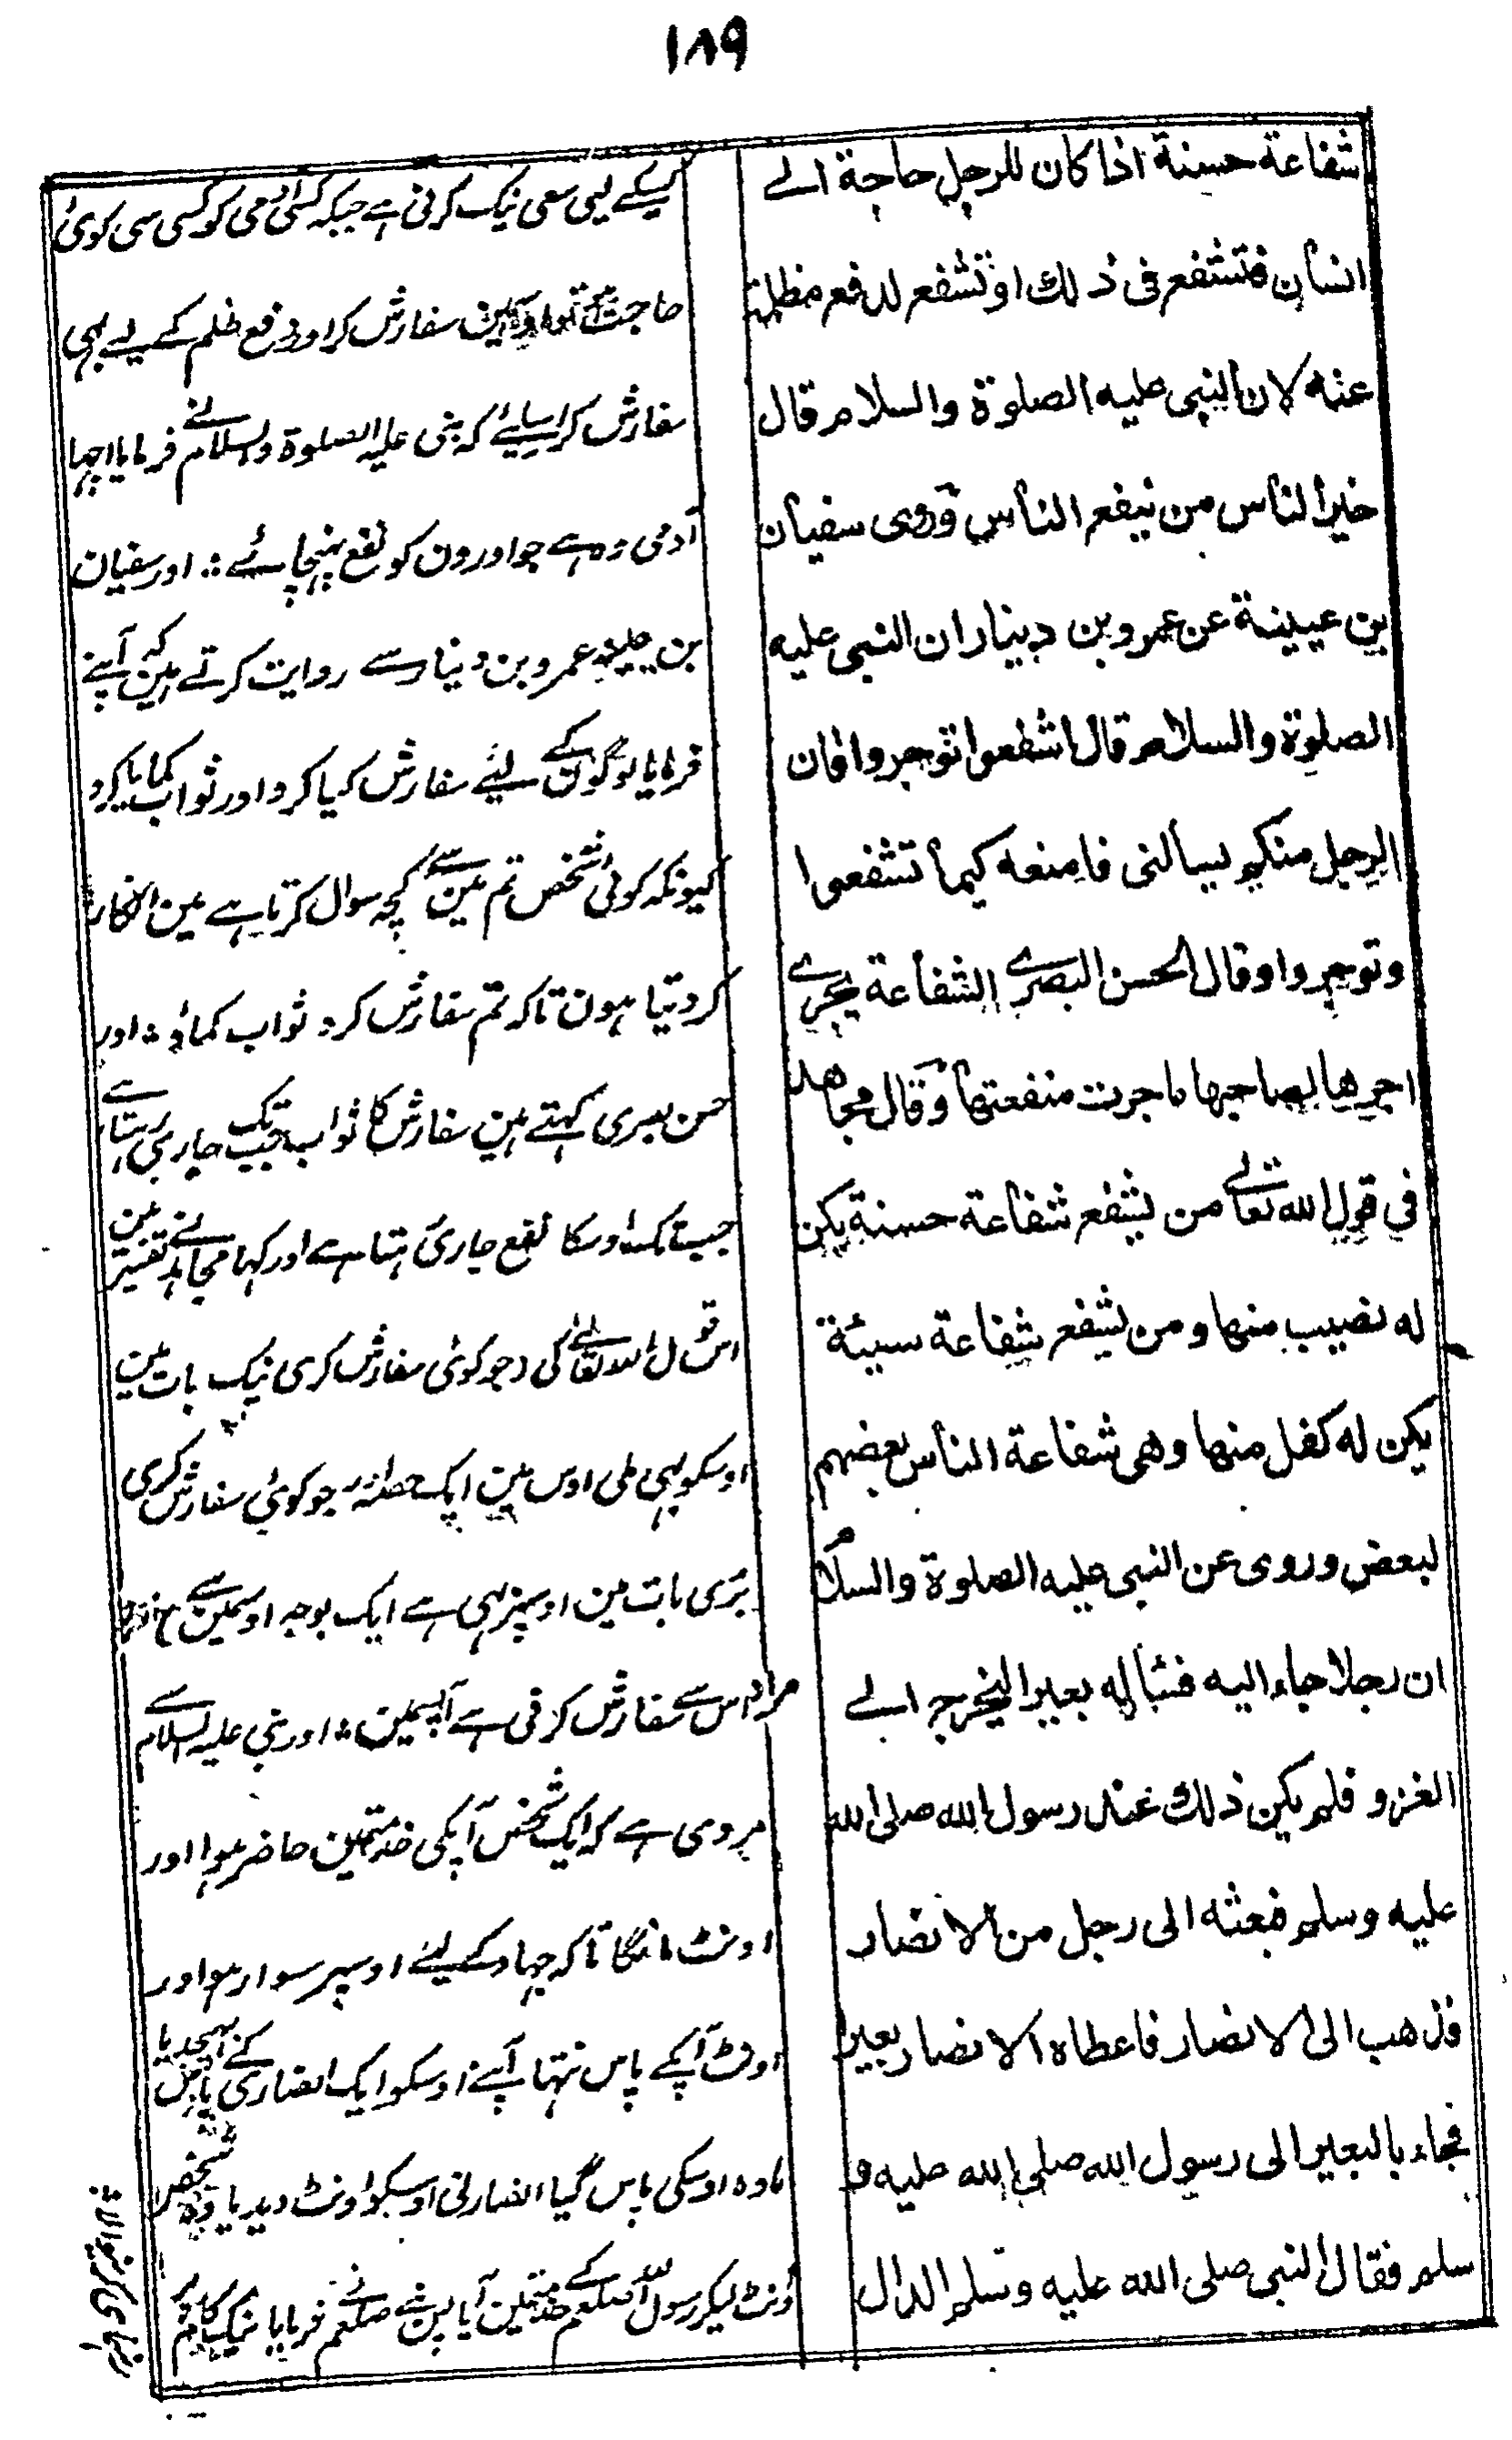 ١٨٩
شفاعة حسنة اذا كان للرجل حاجة الے
انسان فتشفع فى ذلك او تشفع لدفع مظلمة
عنه لان النبى عليه الصلوة والسلام قال
خير الناس من ينفع الناس وروى سفيان
بن عيينة عن عمرو بن دينار ان النبى عليه
الصلوة والسلام قال اشفعوا توجروا فان
الرجل منكم يسألنى فامنعه كيما تشفعوا
وتوجروا وقال الحسن البصرے الشفاعة يجرے
اجرها لصاحبها ما جرت منفعتها وقال مجاهد
في قول الله تعالے من يشفع شفاعة حسنة يكن
له نصيب منها ومن يشفع شفاعة سيئة
يكن له كفل منها وهى شفاعة الناس بعضهم
لبعض وروى عن النبى عليه الصلوة والسلام
ان رجلا جاء اليه فسأله بعيرا ليخرج الے
الغزو فلم يكن ذلك عند رسول الله صلى الله
عليه وسلم فبعثه الى رجل من الانصار
فذهب الى الانصار فاعطاه الانصار بعيرا
فجاء بالبعير الى رسول الله صلى الله عليه و
سلم فقال النبى صلى الله عليه وسلم الدال
کیسکے لیی سعی نیک کرنی ہے جبکہ کسی آدمی کو کسی سی کوئی
حاجت سفارش کر اور دفع ظلم کے لیے بہی
سفارش کر اسلیئے کہ نبی علیہ الصلوۃ والسلام نے فرمایا اچہا
آدمی وہ ہے جو اورون کو نفع پہنچائے ؞ اور سفیان
بن عیینہ عمرو بن دینار سے روایت کرتے ہین کہ آپنے
فرمایا لوگون کے لیئے سفارش کیا کرو اور ثواب کمایا کرو
کیونکہ کوئی شخص تم مین سے کچہ سوال کرتا ہے مین انکار
کردیتا ہون تاکہ تم سفارش کرو ثواب کماؤ ؞ اور
حسن بصری کہتے ہین سفارش کا ثواب جب تک جاری رہتا ہے
جب تک اوسکا نفع جاری رہتا ہے اور کہا مجاہد نے تفسیر مین
اس قول اللہ تعالےٰ کی جو کوئی سفارش کری نیک بات مین
اوسکو بہی ملی اوس مین ایک حصہ اور جو کوئی سفارش کری
بری بات مین اوسپر بہی ہے ایک بوجہ اوسمین سے
مراد اس سے سفارش کرنی ہے آپسمین ؞ اور نبی علیہ السلام سے
مروی ہے کہ ایک شخص آپکی خدمتمین حاضر ہوا اور
اونٹ مانگا تاکہ جہاد کے لیئے اوسپر سوار ہو اور
اونٹ آپکے پاس نتہا آپنے اوسکو ایک انصاری کے پاس بہیجدیا
وہ اوسکی پاس گیا انصارنی اوسکو اونٹ دیدیا وہ شخص
اونٹ لیکر رسول اللہ صلعم کے خدمتمین آیا پس نبی صلعم نے فرمایا نیک کام پر